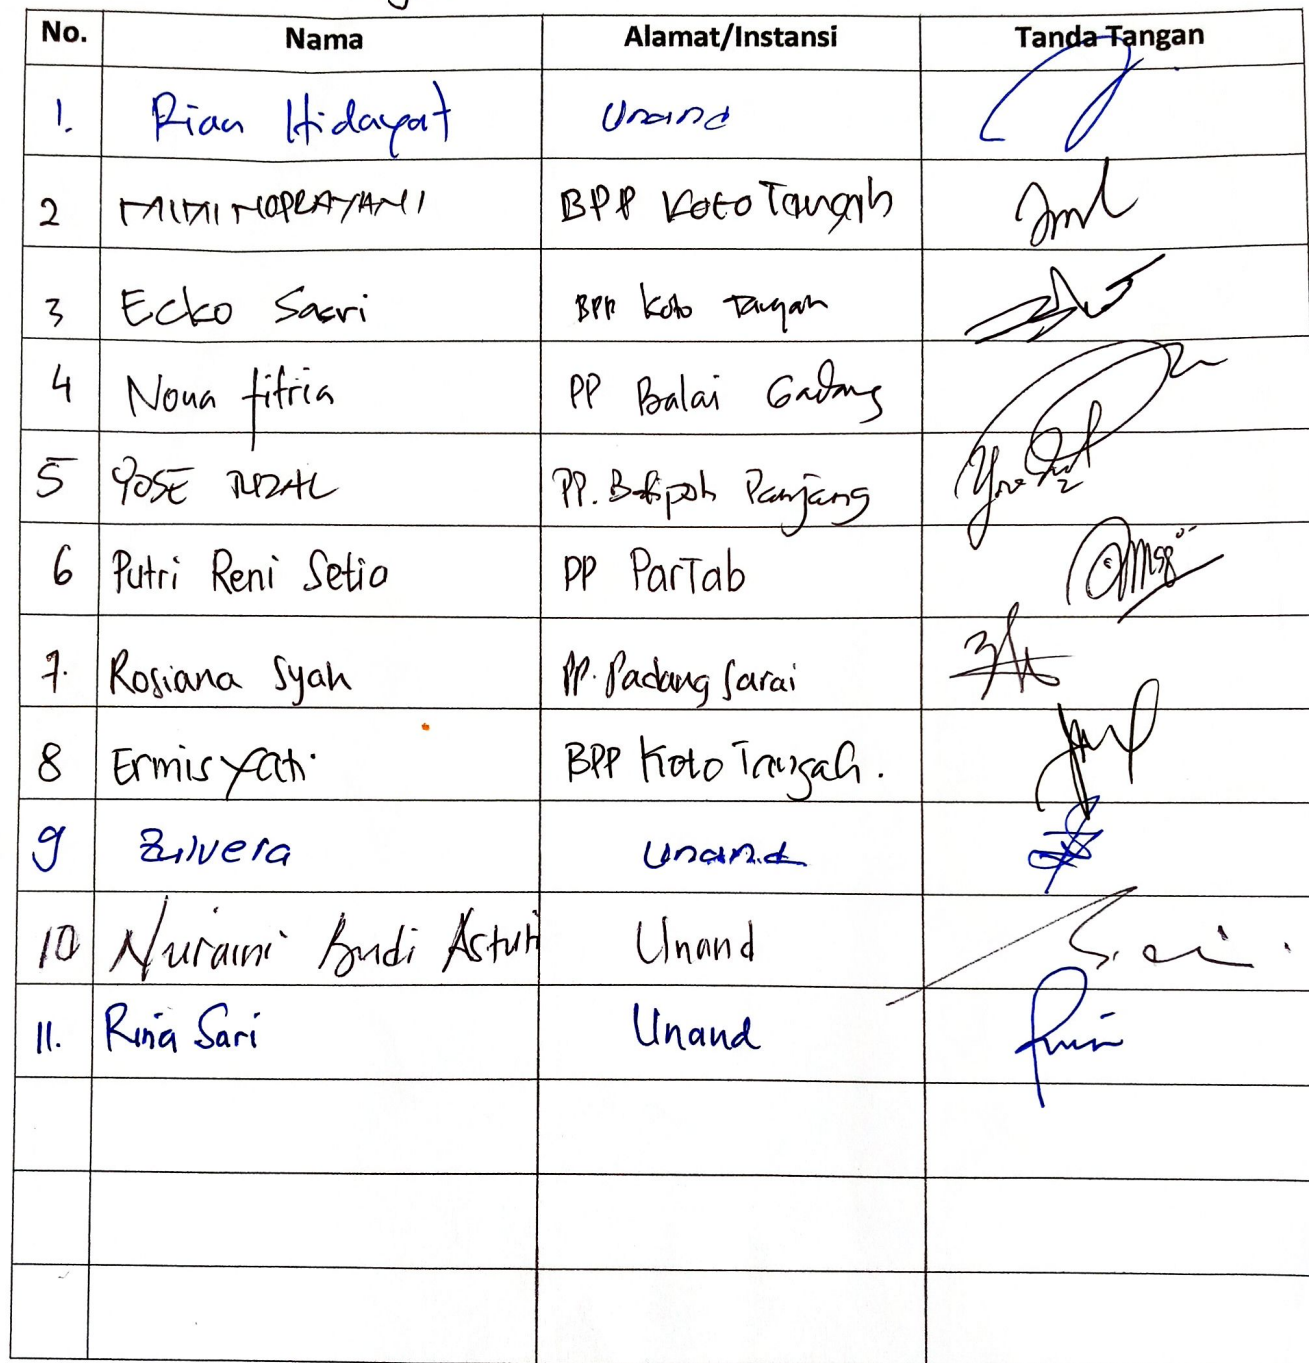 No. Nama Alamat/Instansi Tanda Tangan
1. Rian Hidayat Unand
2 MIMI NOPRAYANI BPP Koto Tangah
3 Ecko Sasri BPP Koto Tangah
4 Nova fitria PP Balai Gadang
5 YOSE RIZAL PP. Batipuh Panjang
6 Putri Reni Setio PP ParTab
7. Rosiana Syah PP. Padang Sarai
8 Ermisyati BPP Koto Tangah.
9 Zulvera Unand
10 Nuraini Budi Astuti Unand
11. Rina Sari Unand